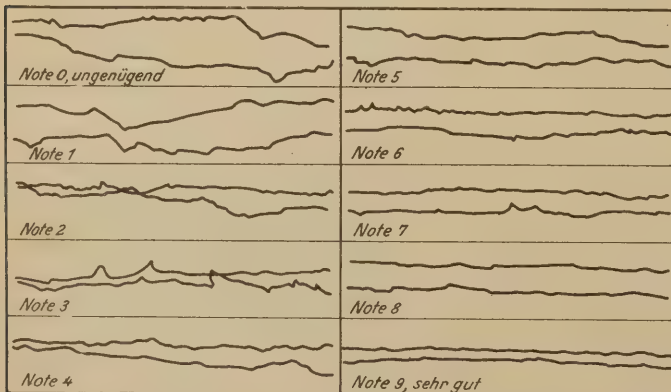 Note 0, ungenügend
Note 1
Note 2
Note 3
Note 4
Note 5
Note 6
Note 7
Note 8
Note 9, sehr gut